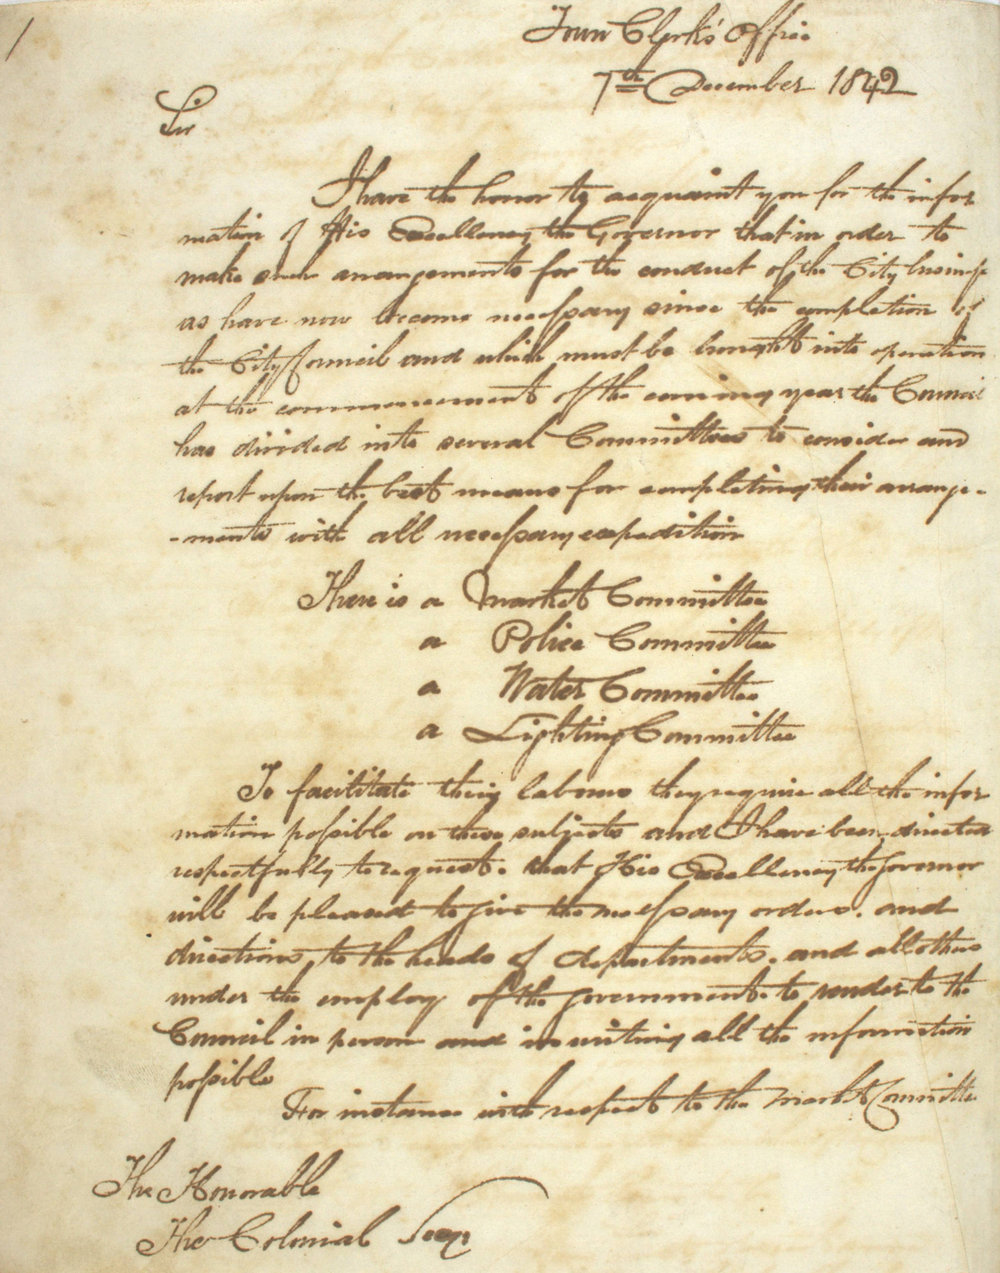 1
Town Clerk's Office
7th December 1842
Sir
I have the honor to acquaint you for the infor
mation of His Excellency the Governor that in order to
make such arrangements for the conduct of the City business
as have now become necessary since the completion of
the City Council and which must be brought into operation
at the commencement of the coming year the Council
has divided into several Committees to consider and
report upon the best means for completing their arrange-
-ments with all necessary expedition
There is a Market Committee
a Police Committee
a Water Committee
a Lighting Committee
To facilitate their labours they require all the infor
mation possible on these subjects and I have been directed
respectfully to request. that His Excellency the Governor
will be pleased to give the necessary orders. and
directions, to the heads of departments. and all others
under the employ of the government. to render to the
Council in person and in writing all the information
possible
For instance with respect to the Market Committee
The Honorable
The Colonial Secy